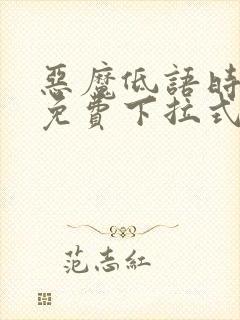 惡魔低語時
免費下拉式
范志紅